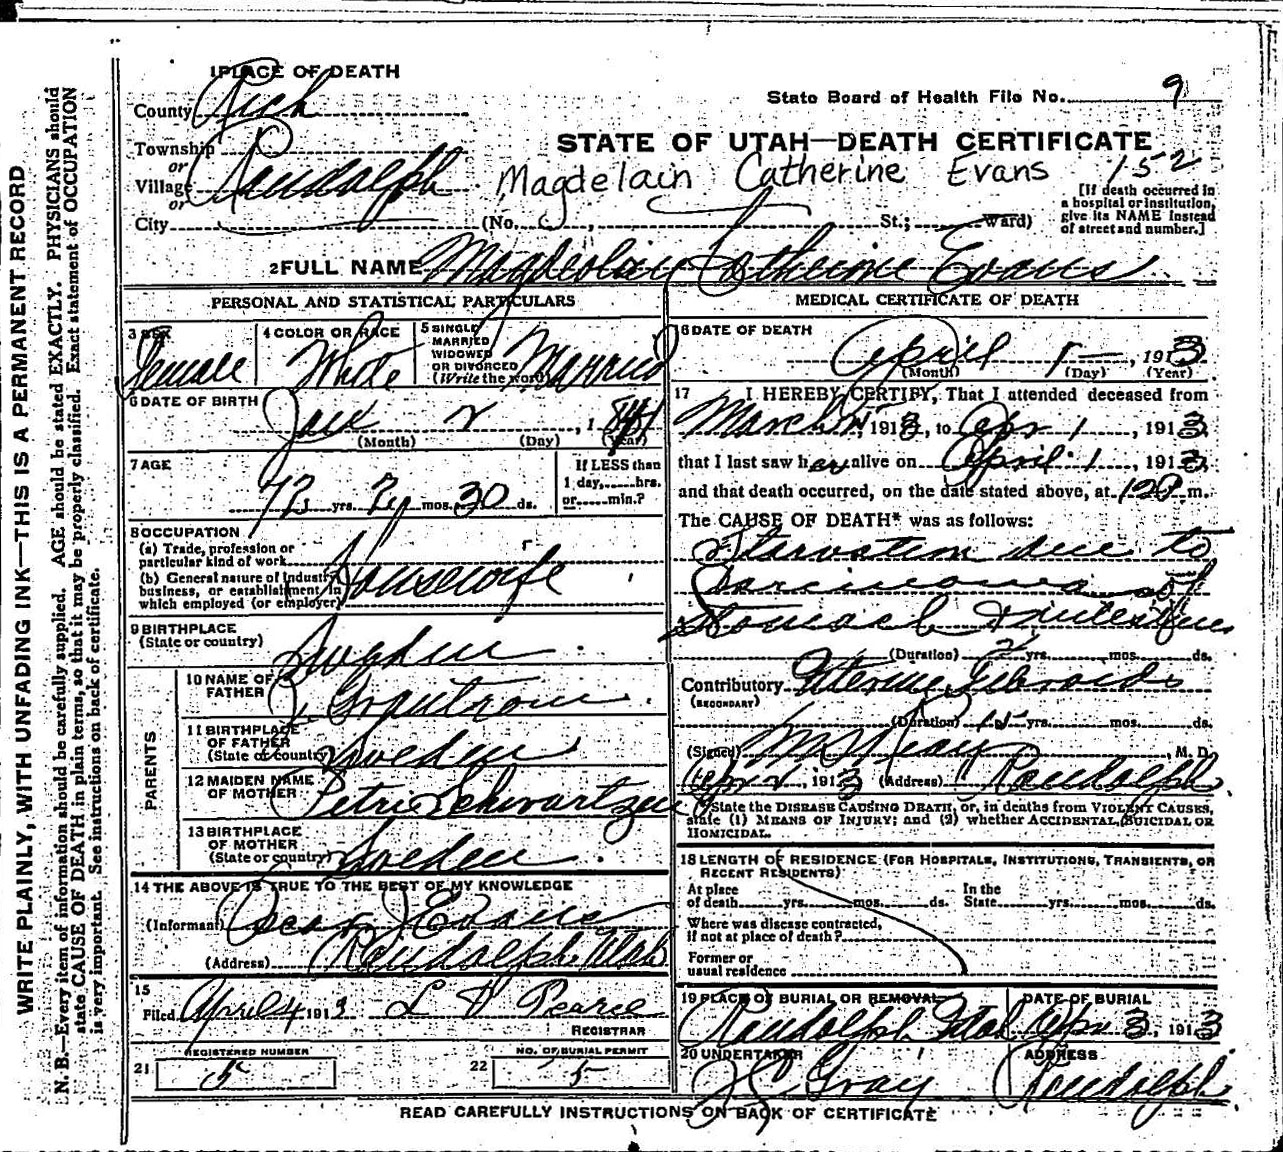 WRITE PLAINLY, WITH UNFADING INK—THIS IS A PERMANENT RECORD
N. B.—Every item of information should be carefully supplied. AGE should be stated EXACTLY. PHYSICIANS should
state CAUSE OF DEATH in plain terms, so that it may be properly classified. Exact statement of OCCUPATION
is very important. See instructions on back of certificate.
1 PLACE OF DEATH
County Rich
State Board of Health File No. 9
STATE OF UTAH—DEATH CERTIFICATE
Township
or
Village Randolph
or
Magdelain Catherine Evans 152
[If death occurred in
a hospital or institution,
give its NAME instead
of street and number.]
City (No. , St.; Ward)
2 FULL NAME Catherine Evans
PERSONAL AND STATISTICAL PARTICULARS
3 SEX Female
4 COLOR OR RACE White
5 SINGLE
MARRIED
WIDOWED
OR DIVORCED
(Write the word) Married
6 DATE OF BIRTH
Jan 2 , 1841
(Month) (Day) (Year)
7 AGE
72 yrs. 2 mos. 30 ds.
If LESS than
1 day, hrs.
or min.?
8 OCCUPATION
(a) Trade, profession or
particular kind of work
(b) General nature of Industry
business, or establishment in
which employed (or employer) Housewife
9 BIRTHPLACE
(State or country) Sweden
PARENTS
10 NAME OF
FATHER
11 BIRTHPLACE
OF FATHER
(State or country) Sweden
12 MAIDEN NAME
OF MOTHER Schvartzen
13 BIRTHPLACE
OF MOTHER
(State or country) Sweden
14 THE ABOVE IS TRUE TO THE BEST OF MY KNOWLEDGE
(Informant) Oscar J Evans
(Address) Randolph Utah
15
Filed April 4 1913 Pearce
REGISTRAR
REGISTERED NUMBER
21 5
NO. OF BURIAL PERMIT
22 5
MEDICAL CERTIFICATE OF DEATH
16 DATE OF DEATH
April 1— , 1913
(Month) (Day) (Year)
17 I HEREBY CERTIFY, That I attended deceased from
March , 1913, to Apr 1 , 1913,
that I last saw her alive on April 1 , 1913
and that death occurred, on the date stated above, at m.
The CAUSE OF DEATH* was as follows:
Starvation due to
Carcinoma of
Stomach & intestines
(Duration) 2 yrs. mos. ds.
Contributory Uterine Fibroids
(SECONDARY)
(Duration) 15 yrs. mos. ds.
(Signed) , M. D.
Apr 2, 1913 (Address) Randolph
*State the DISEASE CAUSING DEATH, or, in deaths from VIOLENT CAUSES,
state (1) MEANS OF INJURY; and (2) whether ACCIDENTAL, SUICIDAL OR
HOMICIDAL.
18 LENGTH OF RESIDENCE (FOR HOSPITALS, INSTITUTIONS, TRANSIENTS, OR
RECENT RESIDENTS)
At place
of death yrs. mos. ds.
In the
State yrs. mos. ds.
Where was disease contracted,
if not at place of death?
Former or
usual residence
19 PLACE OF BURIAL OR REMOVAL
Randolph Utah
DATE OF BURIAL
Apr 3, 1913
20 UNDERTAKER
Gray
ADDRESS
Randolph
READ CAREFULLY INSTRUCTIONS ON BACK OF CERTIFICATE